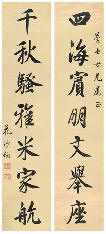 四海賓朋文舉座
千秋騷雅米家航